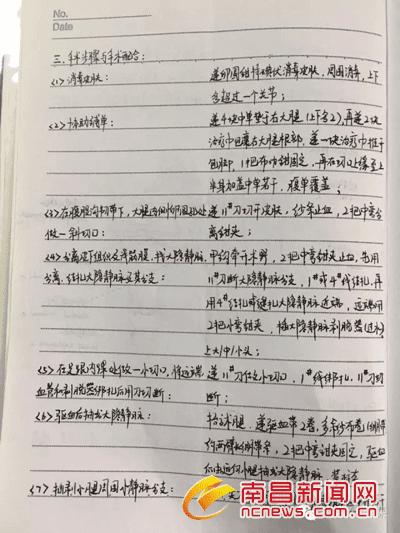 No.
Date
三. 手术步骤与手术配合:
<1>消毒皮肤: 递卵圆钳持碘伏消毒皮肤, 周围消毒, 上下
各超过一个关节;
<2>协助铺单: 递4块中单垫于右大腿(上下各2), 再递2块
治疗巾围裹右大腿根部, 递一块治疗巾推于
包脚, 1中巾布巾钳固定, 再在切口上缘至上
半身加盖中单若干, 腹单覆盖;
<3>在腹股沟韧带下, 大腿内侧卵圆窝处 递11#刀切开皮肤, 纱条止血, 2把中弯
做一斜切口: 分离钳夹;
<4>分离皮下组织及浅筋膜, 找大隐静脉, 中钩牵开术野, 2把中弯钳夹止血, 老用
分离, 结扎大隐静脉及其分支: 11#刀断大隐静脉分支, 1#或4#线结扎, 再
用4#结扎或缝扎大隐静脉近端, 远端用
2把中弯钳夹, 插大隐静脉剥脱器(过水)
上大1中1小头;
<5>在足踝内踝处做一小切口, 将远端 递11#刀做小切口, 1#线绑扎, 11#刀切
血管和剥脱器绑扎后用刀切断: 断;
<6>驱血后抽出大隐静脉: 抬高术腿, 递驱血带2卷, 多余纱布卷
2把中弯钳夹固定, 驱血
后由近向心腿抽出大隐静脉
<7>抽剥小腿周围小静脉分支:
南昌新闻网
ncnews.com.cn